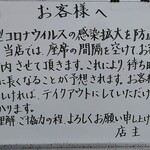 お客様へ
型コロナウイルスの感染拡大を防止
当店では、座席の間隔を空けてお客
内させて頂きます。これにより、待ち時
に長くなることが予想されます。お客
しければ、テイクアウトにしていただけ
かります。
理解、ご協力の程、よろしくお願い申し上げ
店主